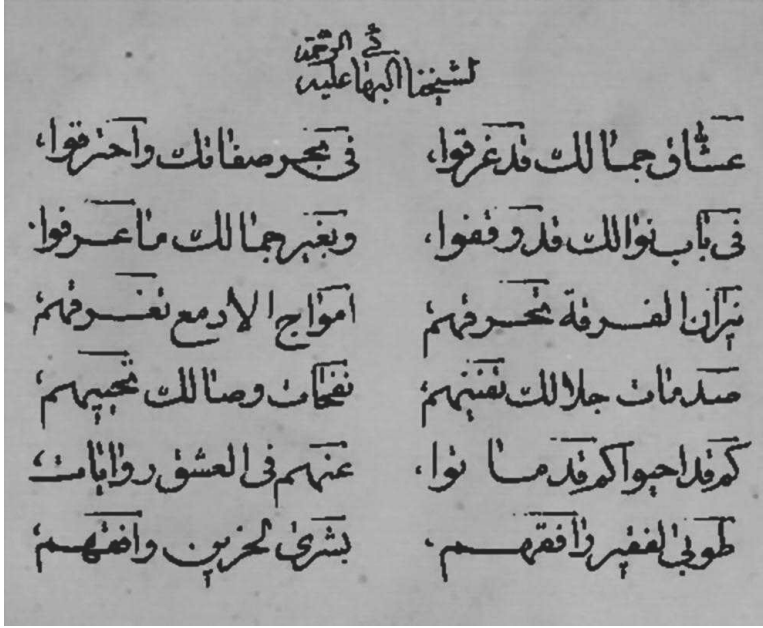 لشيخنا البهائي عليه الرحمة
عشاق جمالك قد غرقوا، في بحر صفاتك واحترقوا،
في باب نوالك قد وقفوا، وبغير جمالك ما عرفوا.
نيران الفرقة تحرقهم امواج الادمع تغرقهم
صدمات جلالك تفنيهم نفحات وصالك تحييهم
كم قد احيوا كم قد ماتوا، عنهم في العشق روايات
طوبى لفقير رافقهم. بشرى لحزين وافقهم